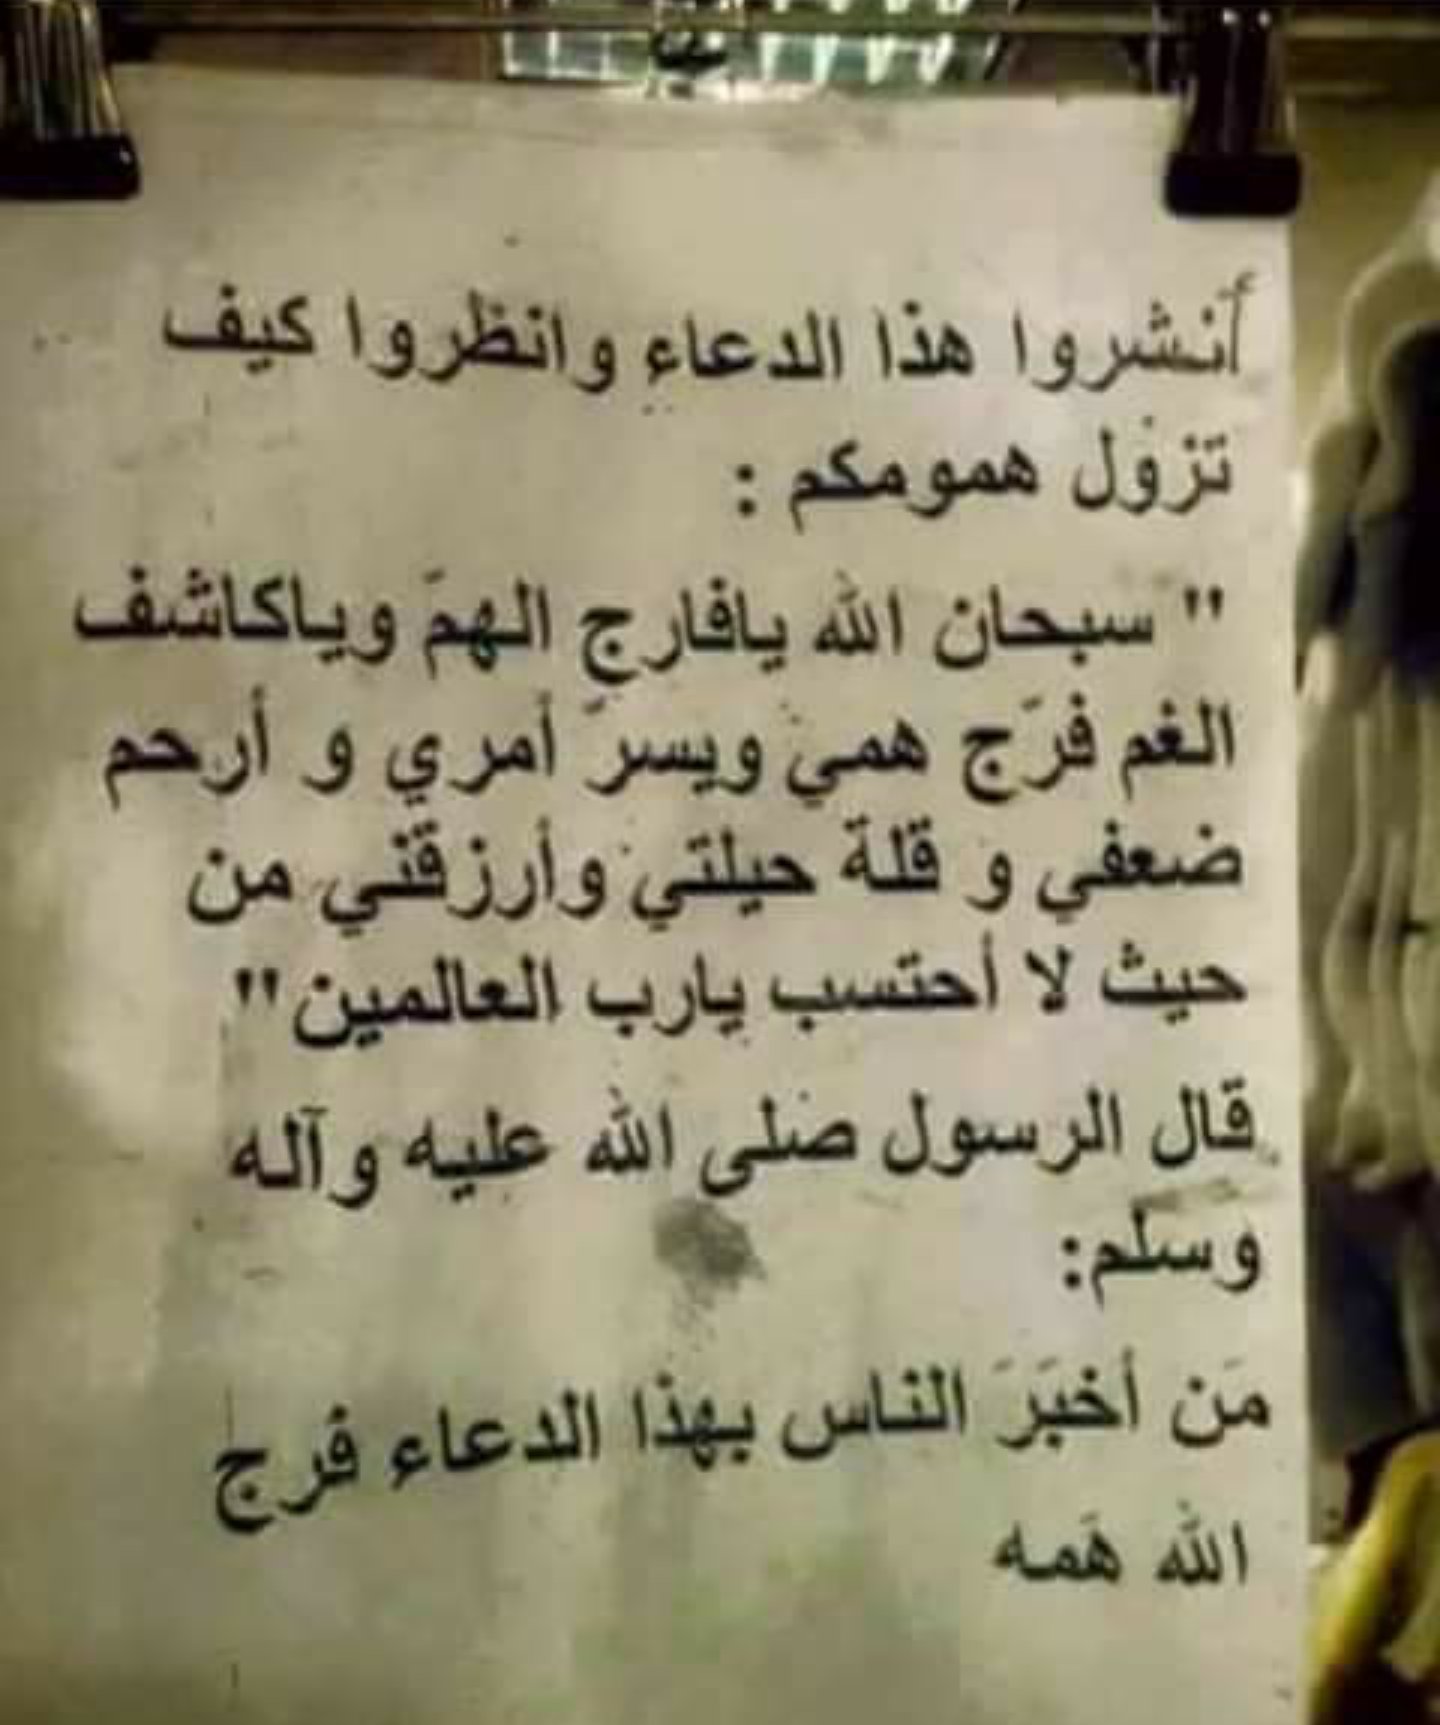 أنشروا هذا الدعاء وانظروا كيف
تزول همومكم :
" سبحان الله يافارج الهمّ وياكاشف
الغم فرّج همي ويسرّ أمري و أرحم
ضعفي و قلة حيلتي وأرزقني من
حيث لا أحتسب يارب العالمين"
قال الرسول صلى الله عليه وآله
وسلم:
مَن أخبَرَ الناس بهذا الدعاء فرج
الله هَمه